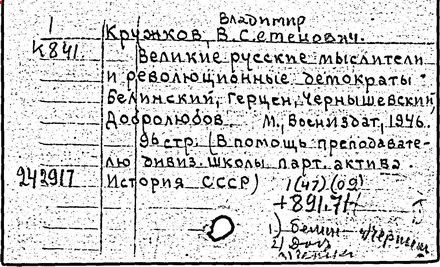 Владимир
1 Кружков, В.Семенович.
К841. Великие русские мыслители
и революционные демократы
Белинский, Герцен, Чернышевский,
Добролюбов. М., Воениздат, 1946.
96 стр. (В помощь преподавате-
лю дивиз. школы парт. актива.
242917 История СССР) 1(47)(09)
+891.71
1) Белин
2)